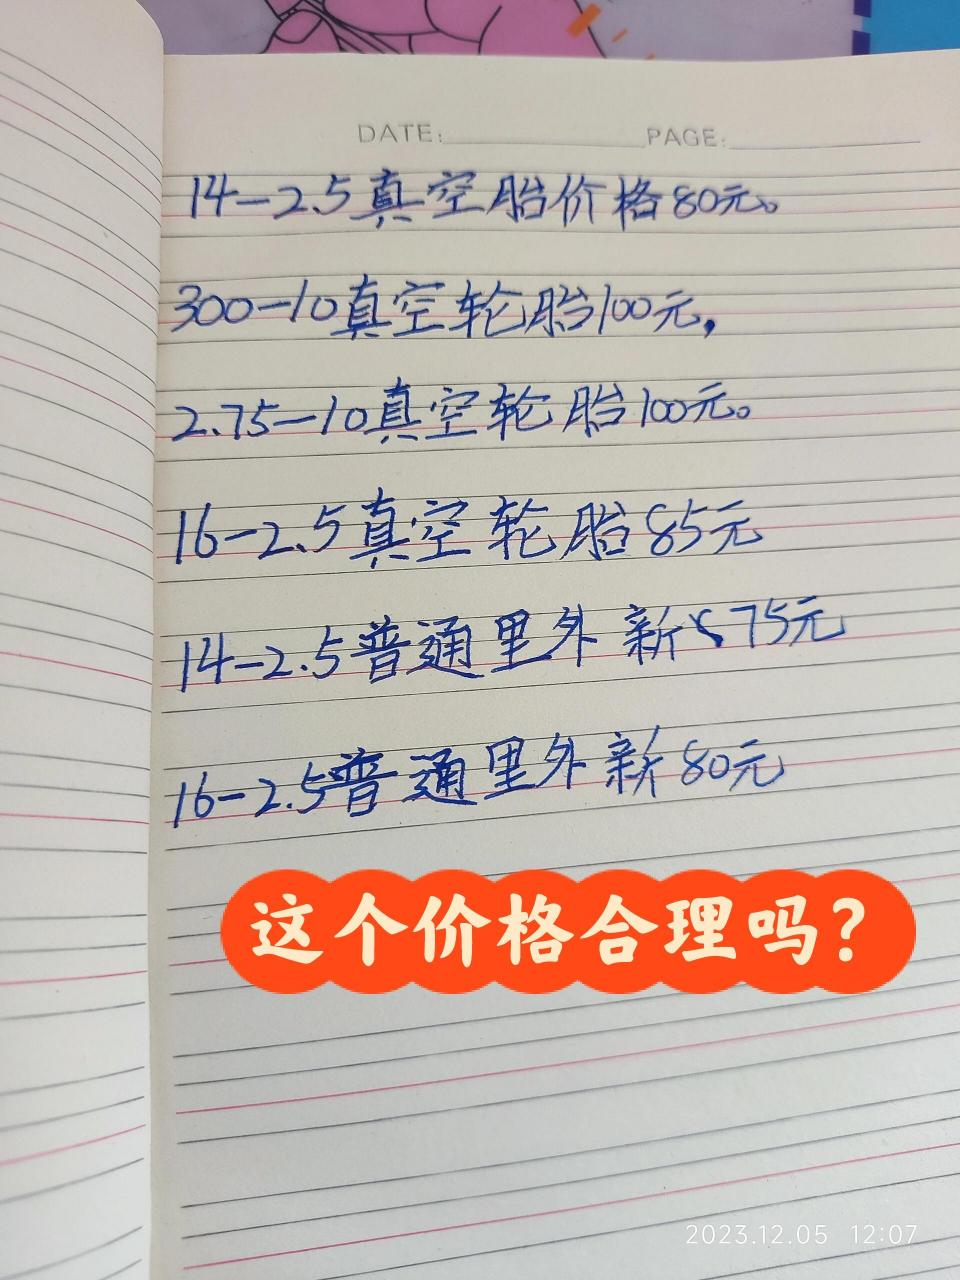 DATE: PAGE:
14-2.5真空胎价格80元。
300-10真空轮胎100元,
2.75-10真空轮胎100元。
16-2.5真空轮胎85元
14-2.5普通里外新75元
16-2.5普通里外新80元
这个价格合理吗?
2023.12.05 12:07